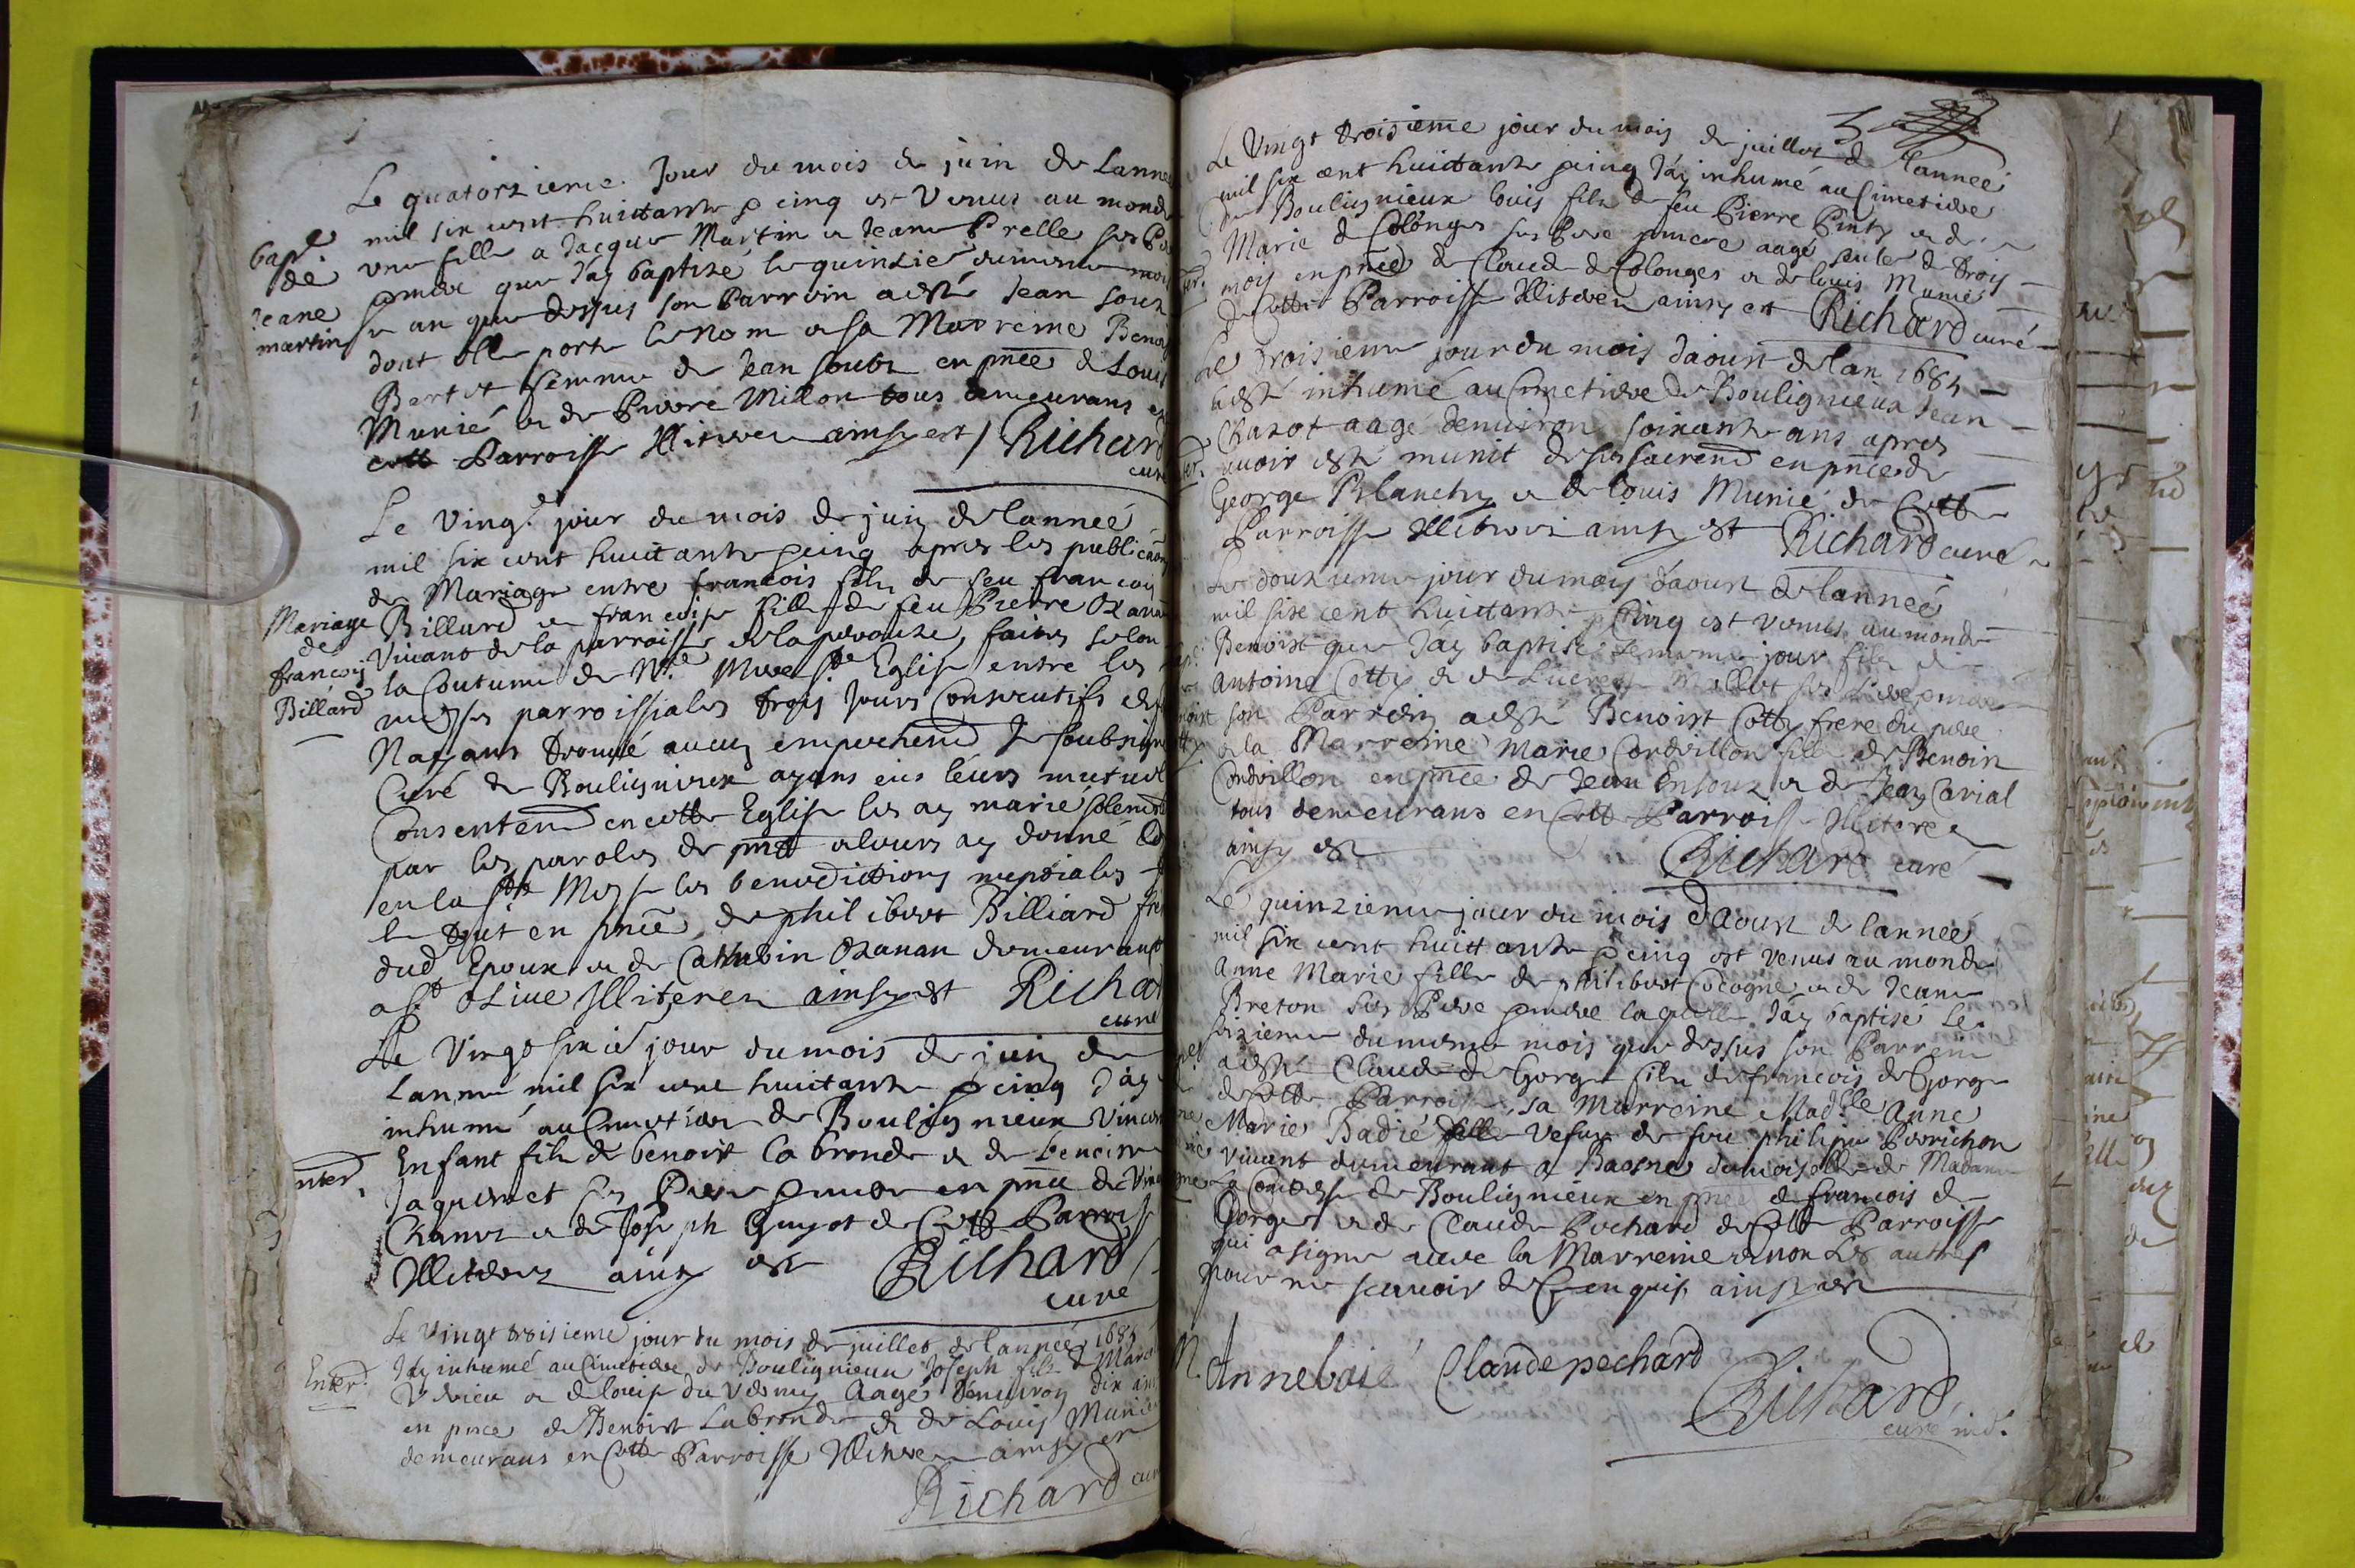 Le quatorzieme Jour du mois de juin de Lanne
mil six cent huictante & cinq est Venue au monde
bapt
de
Jeane
martin
vne fille a Jacque Martin & Jeane Prelle ses Per
& mere que Jay baptizé le quinzie du mesme mois
& an que dessus son Parrein a esté Jean
dont elle porte le Nom & sa Marreine Benoi
Bertet femme de Jean en pnce de Louis
Munié & de Pierre Millon tous demeurans en
cette Parroisse Illiterez ainsy est / Richard
curé
Le Vingt. jour du mois de juin de lanneé
mil six cent huictante & cinq apres les publicaons
de Mariage entre francois fils de feu francois
Mariage
de
francois
Billard
Billard & francoise fille de feu Pierre Ozanan
Viuans de la parroisse de laperouze, faites selon
la Coutume de Nre. Mere Ste Eglise entre les
messes parroissiales trois Jours Consecutifs et
Nayans trouué aucun empechemt Je soubsigné
Curé de Boulignieux ayans eus leurs mutuel
Consentemt en cette Eglise les ay marié solemt
par les paroles de pnt & leurs ay donné
en la ste Messe les benedictions nuptiales
le tout en pnce de philibert Billiard frere
dud Epoux & de Catherin Ozanan demeurant
a St Oliue Illiterez ainsy est Richard
curé
Le Vingt sixie jour du mois de juin de
Lanneé mil six cent huictante & cinq Jay
inhumé au Cimetiere de Boulignieux Vincent
nterr.
Enfant fils de benoist la bronde & de
Jaquemet ses Pere & mere en pnce de
& de Joseph Guyot de Cette Parroisse
Illiterez ainsy est Richard
curé
Le Vingt troisieme jour du mois de juillet de lanneé 1685
Enterr.
Jay inhumé au Cimetiere de Boulignieux Joseph fils de
& de louise du Aagé denuiron dix ans
en pnce de Benoist Labronde & de Louis Munié
demeurans en Cette Parroisse Illiterez ainsy est
Richard curé
Le Vingt troisieme jour du mois de juillet de lanneé
mil six cent huictante & cinq Jay inhumé au Cimetiere
de Boulignieux louis fils de feu Pierre & de
Marie de Colonges ses Pere & mere aagé de trois
mois en pnce de Claude de Colonges & de louis Munié
de Cette Parroisse Illiterez ainsy est Richard curé
Le troisieme jour du mois daoust de lan 1685
a esté inhumé au Cimetiere de Boulignieux Jean
Chazot aagé denuiron soixante ans apres
auoir esté munit de ses sacremt en pnce de
George Blanchy & de louis Munié de Cette
Parroisse Illiterez ainsy est Richard curé
Le douzieme jour du mois daoust de lanneé
mil sixe cent huictante & Cinq est venus au monde
Benoist que Jay baptisé le mesme jour fils de
Antoine Cotty & de Lucresse Millet ses Pere & mere
son Parrein a esté Benoist Cotty frere du pere
& la Marreine Marie Cordeillon fille de Benoin
Cordeillon en pnce de Jean & de Jean Carial
tous demeurans en Cette Parroisse Illiterez
ainsy est Richard curé
Le quinzieme jour du mois daoust de lanneé
mil six cent huittante & cinq est venus au monde
Anne Marie fille de philibert Cocogne & de Jeane
Breton ses Pere & mere laquelle Jay baptisé le
sizieme du mesme mois que dessus son Parrein
a esté Claude de Gorge fils de francois de Gorge
de Cette Parroisse, sa Marreine Madlle Anne
Marie Badié vefue de feu philipe Perrichon
viuant demeurant a Baosne demoiselle de Madame
la Comtesse de Boulignieux en pnce de francois de
Gorges & de Claude Pechard de Cette Parroisse
qui a signe auec la Marreine & non Les autres
pour ne scauoir de Ce enquis ainsy est
Claude pechard
Richard
curé